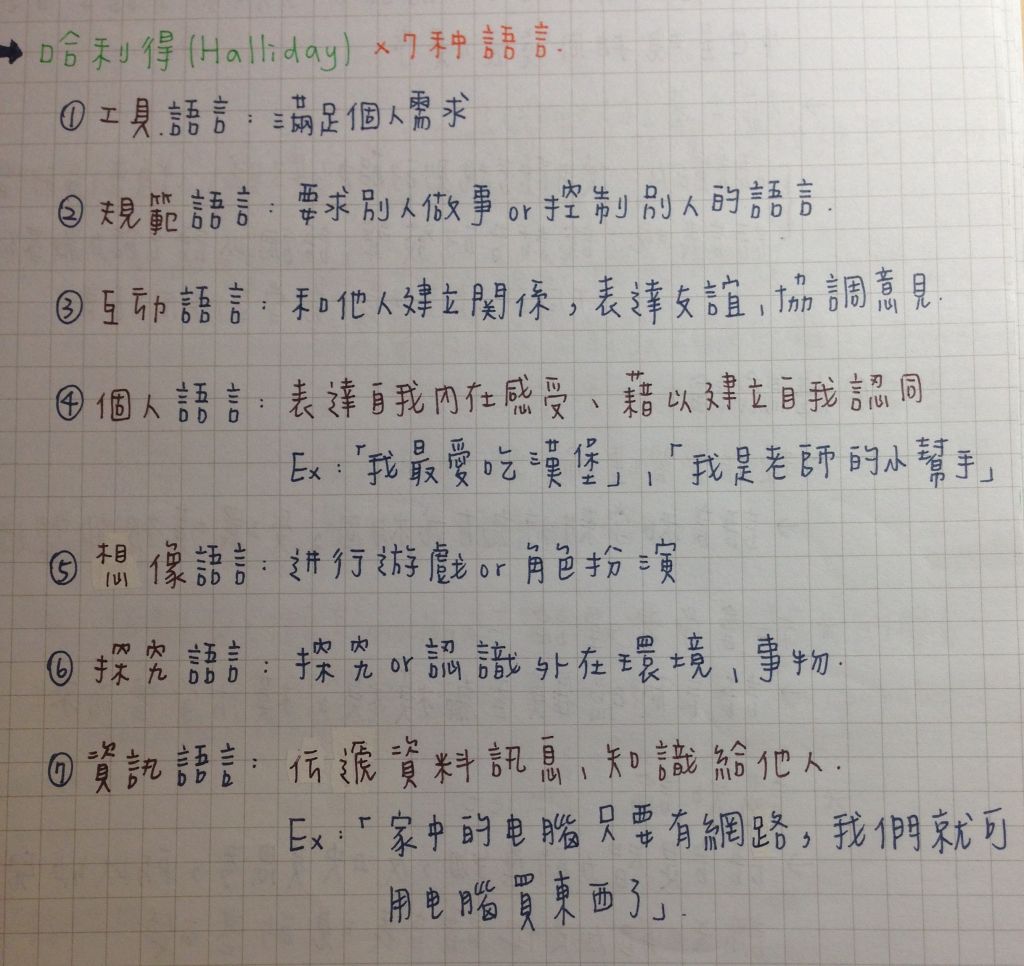 → 哈利得(Halliday) ×7种語言.
① 工具語言：滿足個人需求
② 規範語言：要求別人做事or控制別人的語言.
③ 互动語言：和他人建立関係，表達友誼、協調意見.
④ 個人語言：表達自我內在感受、藉以建立自我認同
Ex：「我最愛吃漢堡」、「我是老師的小幫手」
⑤ 想像語言：进行游戲or角色扮演
⑥ 探究語言：探究or認識外在環境、事物.
⑦ 資訊語言：伝遞資料訊息、知識給他人.
Ex：「家中的电腦只要有網路，我們就可
用电腦買東西了」.